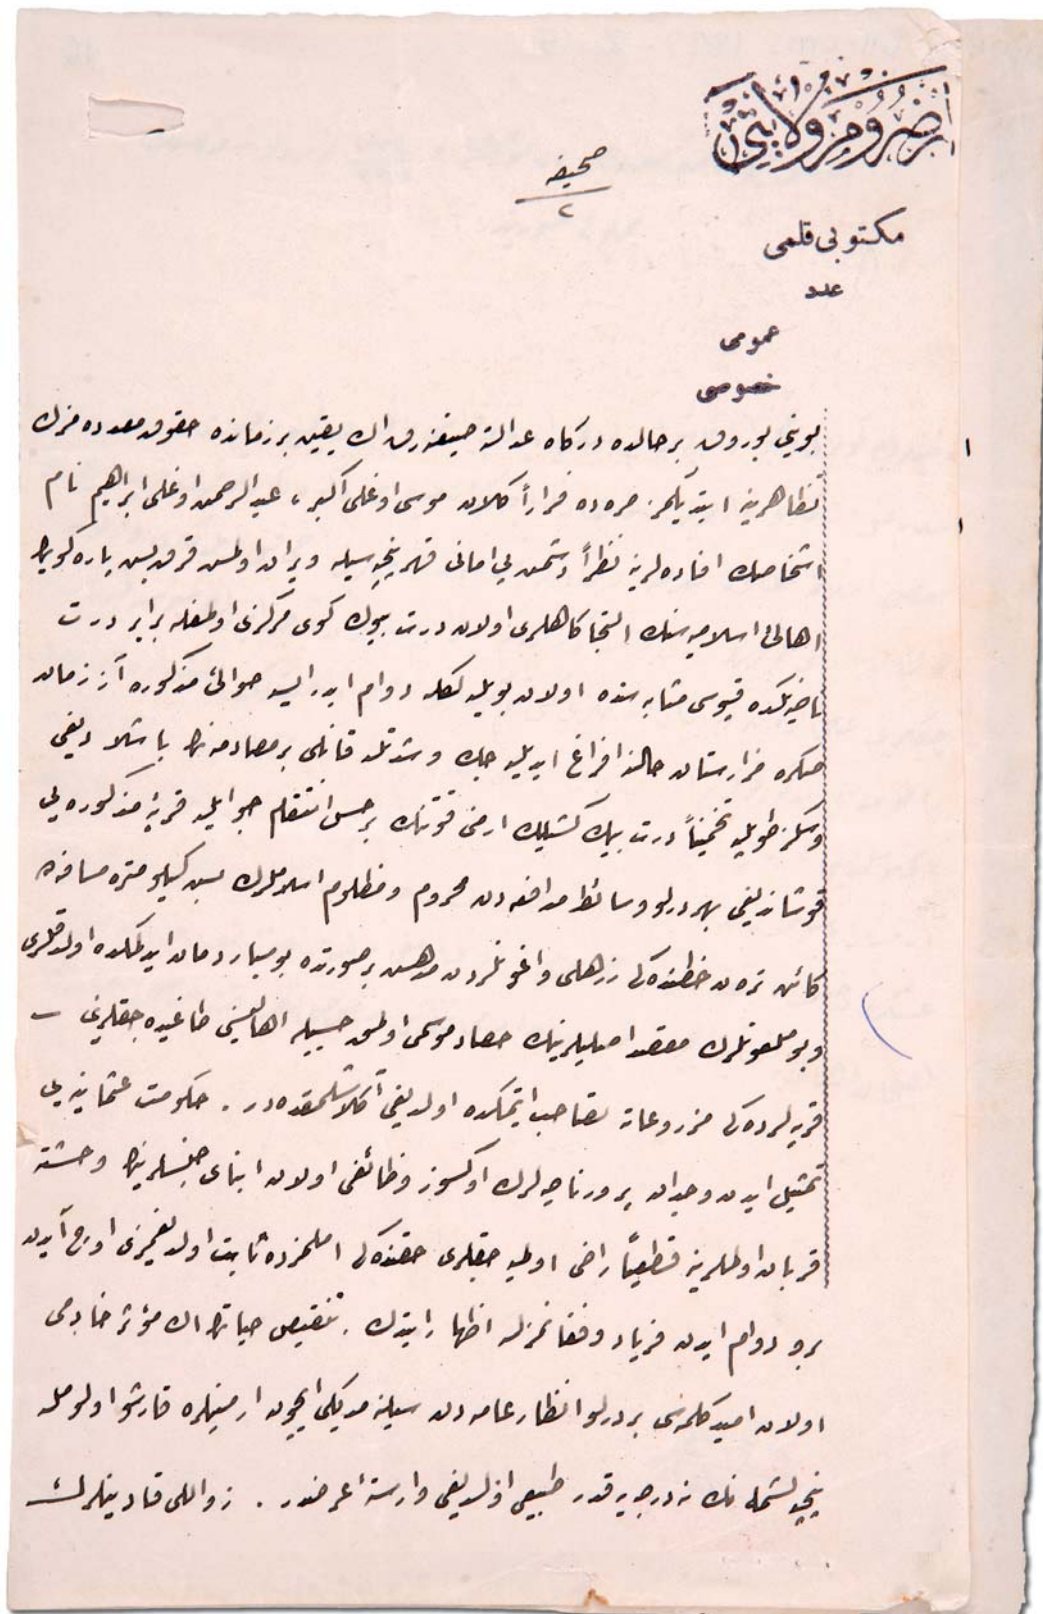 ارضروم ولايتى
صحيفه
٢
مكتوبى قلمى
عدد
عمومى
خصوصى
بوينى بوروق بر حالده درگاه عدالته صيغنه رق اك يقين بر زمانده حقوق مزك
تظاهرينه ايتديكمز صره ده فراراً كلان موسى اوغلى اكبر، عبد الرحمن اوغلى ابراهيم نام
اشخاصك افاده لرينه نظراً دشمن بى امانى قهر پنجه سيله ويران اولمش قرق بش پاره كويك
اهالئ اسلاميه سنك التجا كاهلرى اولان درت بيوك كوى مركزى اولمغله برابر درت
ناحيه لكده قپوسى مثابه سنده اولان بويله لكله دوام ايدر ايسه حوالئ مذكوره آز زمان
صكره مزارستان حالنه افراغ ايديله جك و شدتلى قانلى بر مصادمه نك باشلاديغى
و سكز طوپله تخميناً درت بيك كشيلك ارمنى قوتنك بر حس انتقام جوايله قريۀ مذكوره يى
قوشاتديغى بهر درلو وسائط مدافعه دن محروم و مظلوم اسلاملرك بش كيلو متره مسافه ده
كائن تره ن خطنده كى زرهلى واغونلردن مدهش بر صورتده بومباردمان ايدلمكده اولدقلرى
و بو ملعونلرك مقصد اصليلرينك حصاد موسمى اولمق حسبيله اهاليسنى طاغيده جقلرينى
قريه لرده كى مزروعاته تصاحب ايتمكده اولديغى آكلاشلمقده در. حكومت عثمانيه يى
تمثيل ايدن وجدان پرور ناحيه لرك اوكسوز وظائفى اولان ابناى جنسلرينك وحشته
قربان اولملرينه قطعياً راضى اولميه جقلرى حقنده كى املمزده ثابت اولديغمزى اوچ آيدن
برو دوام ايدن فرياد و فغانمزله اظهار ايتدك. تنقيص حياتك اك مؤثر خادمى
اولان اميد كلمه سى بر درلو انظار عامه دن سيلنه مديكى ايچون ارمنيلره قارشو اولومله
پنچه لشمه نك نه درجه يه قدر طبيعى اولديغى وارسته عرضدر. زواللى قادينلرك